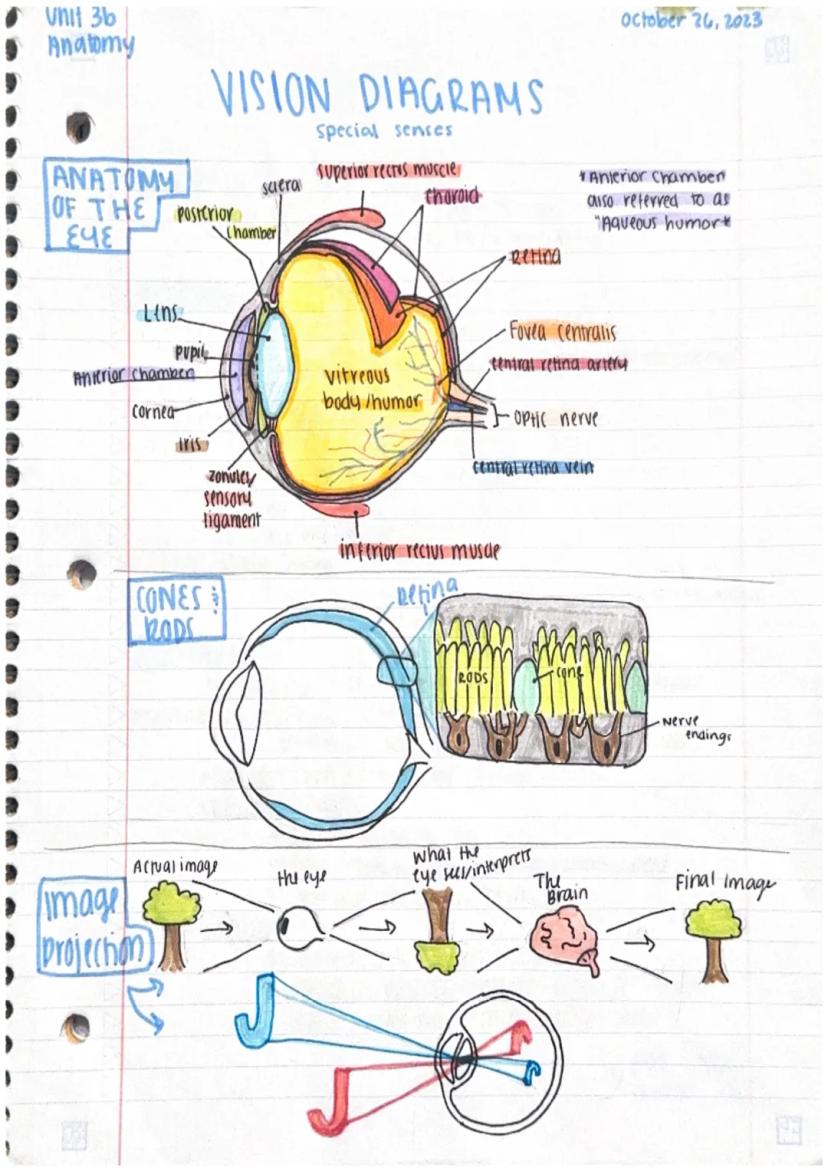 Unit 3b
Anatomy
October 26, 2023
VISION DIAGRAMS
Special senses
ANATOMY
OF THE
EYE
sclera
superior rectus muscle
choroid
*Anterior Chamber
also referred to as
"Aqueous humor*
posterior
chamber
Retina
Lens
Fovea centralis
pupil
central retina artery
Anterior chamber
vitreous
body/humor
cornea
optic nerve
iris
central retina vein
zonules/
sensory
ligament
inferior rectus muscle
CONES &
RODS
Retina
RODS
CONE
Nerve
endings
Image
projection
Actual image
the eye
What the
eye sees/interprets
The
Brain
Final Image